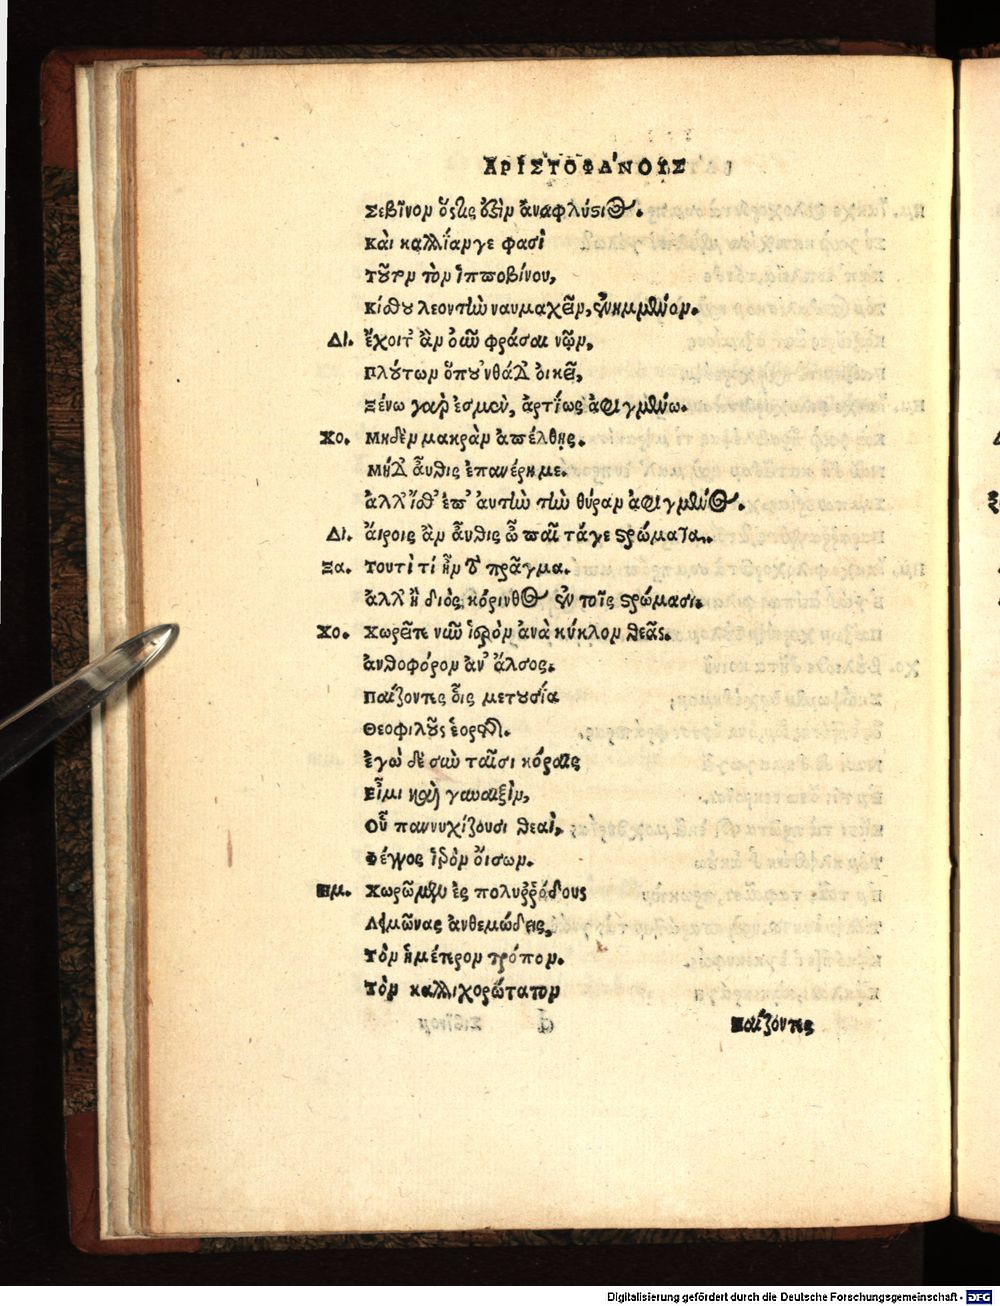 ΑΡΙΣΤΟΦΑΝΟΥΣ
Σεβῖνον ὅςτις ἐςὶν ἀναφλύςιος.
Καὶ καλλίαν γε φασὶ
Τοῦτον τὸν ἱπποβίνου,
Κύσθου λεοντὴν ναυμαχεῖν, ἐνημμένον.
ΔΙ. ἔχοιτ' ἂν οὖν φράσαι νῷν,
Πλούτων ὅπου 'νθάδ' οἰκεῖ,
Ξένω γαρ ἐσμὲν, ἀρτίως ἀφιγμένω.
ΧΟ. Μηδὲν μακρὰν ἀπέλθης.
Μηδ' αὖθις ἐπανέρη με.
ἀλλ' ἴσθ' ἐπ' αὐτὴν τὴν θύραν ἀφιγμένος.
ΔΙ. ἄιροις ἂν αὖθις ὦ παῖ τάγε ςρώματα.
Ξα. Τουτὶ τί ἦν τὸ πρᾶγμα.
ἀλλ' ἢ διὸς, κόρινθος ἐν τοῖς ςρώμασι.
ΧΟ. Χωρεῖτε νῦν ἱερὸν ἀνὰ κύκλον θεᾶς.
ἀνθοφόρον ἀν' ἄλσος.
Παίζοντες οἷς μετουσία
Θεοφιλοῦς ἑορτῆς.
ἐγὼ δὲ σὺν ταῖσι κόραις
Εἶμι καὶ γυναιξὶν,
Οὗ παννυχίζουσι θεαὶ,
Φέγγος ἱερὸν οἴσων.
Ημ. Χωρῶμεν ἐς πολυῤῥόδους
Λειμῶνας ἀνθεμώδεις,
Τὸν ἡμέτερον τρόπον.
Τὸν καλλιχορώτατον
Παίζοντες
Digitalisierung gefördert durch die Deutsche Forschungsgemeinschaft - DFG